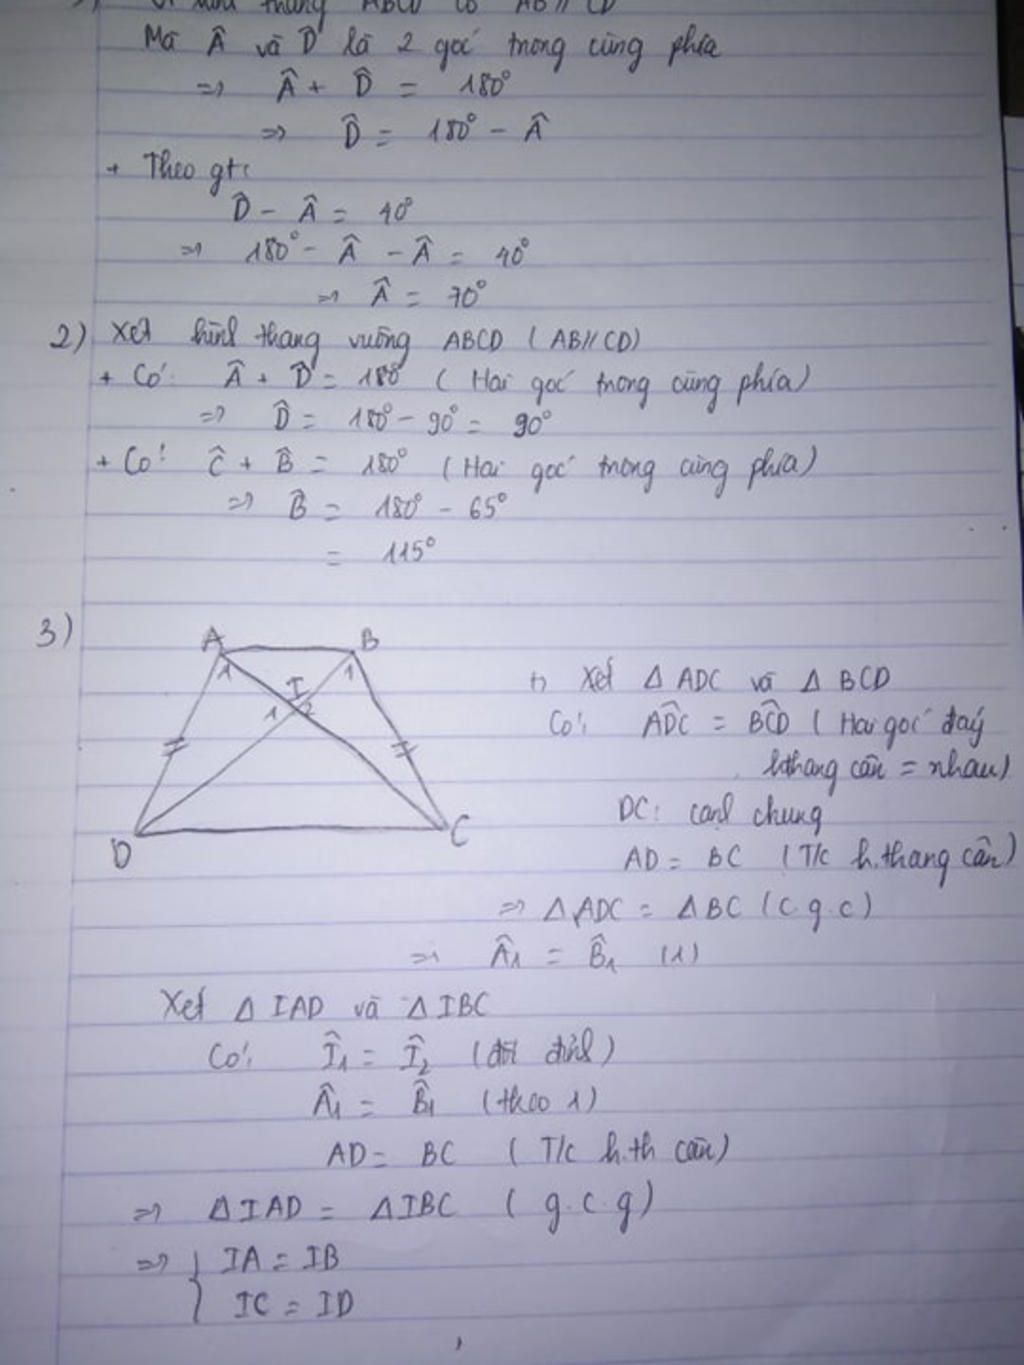 thang ABCD có AB // CD
Mà Â và D̂ là 2 góc trong cùng phía
=> Â + D̂ = 180°
=> D̂ = 180° - Â
+ Theo gt:
D̂ - Â = 40°
=> 180° - Â - Â = 40°
=> Â = 70°
2) Xét hình thang vuông ABCD (AB // CD)
+ Có: Â + D̂ = 180° (Hai góc trong cùng phía)
=> D̂ = 180° - 90° = 90°
+ Có: Ĉ + B̂ = 180° (Hai góc trong cùng phía)
=> B̂ = 180° - 65°
= 115°
3)
A B
1 I 1
1 2
D C
+) Xét Δ ADC và Δ BCD
Có: ADC^ = BCD^ (Hai góc đáy
hthang cân = nhau)
DC: cạnh chung
AD = BC (T/c h.thang cân)
=> Δ ADC = Δ BC (c.g.c)
=> Â1 = B̂1 (1)
Xét Δ IAD và Δ IBC
Có: Î1 = Î2 (đối đỉnh)
Â1 = B̂1 (theo 1)
AD = BC (T/c h.th cân)
=> Δ IAD = Δ IBC (g.c.g)
=> { IA = IB
IC = ID